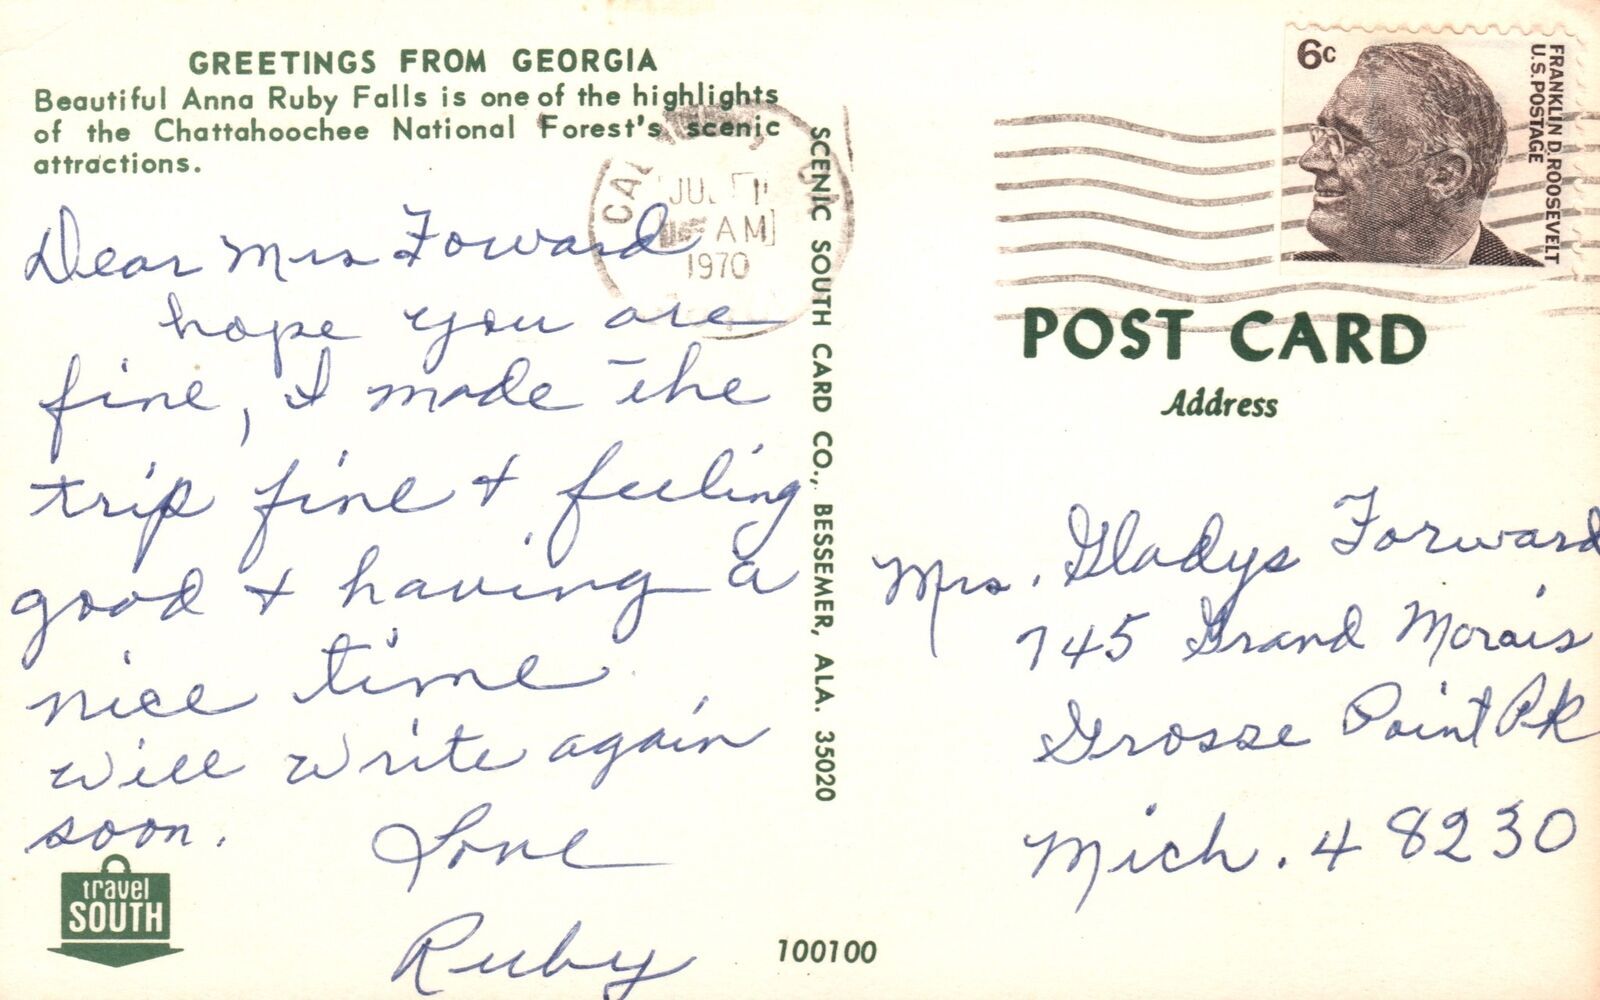 GREETINGS FROM GEORGIA
Beautiful Anna Ruby Falls is one of the highlights
of the Chattahoochee National Forest's scenic
attractions.
Dear Mrs Foward
hope you are
fine, I made the
trip fine + feeling
good + having a
nice time.
will write again
soon.
Love
Ruby
travel
SOUTH
SCENIC SOUTH CARD CO., BESSEMER, ALA. 35020
100100
AM
1970
6c
FRANKLIN D. ROOSEVELT
U.S. POSTAGE
POST CARD
Address
Mrs. Gladys Forward
745 Grand Morais
Grosse Point Pk
Mich. 48230